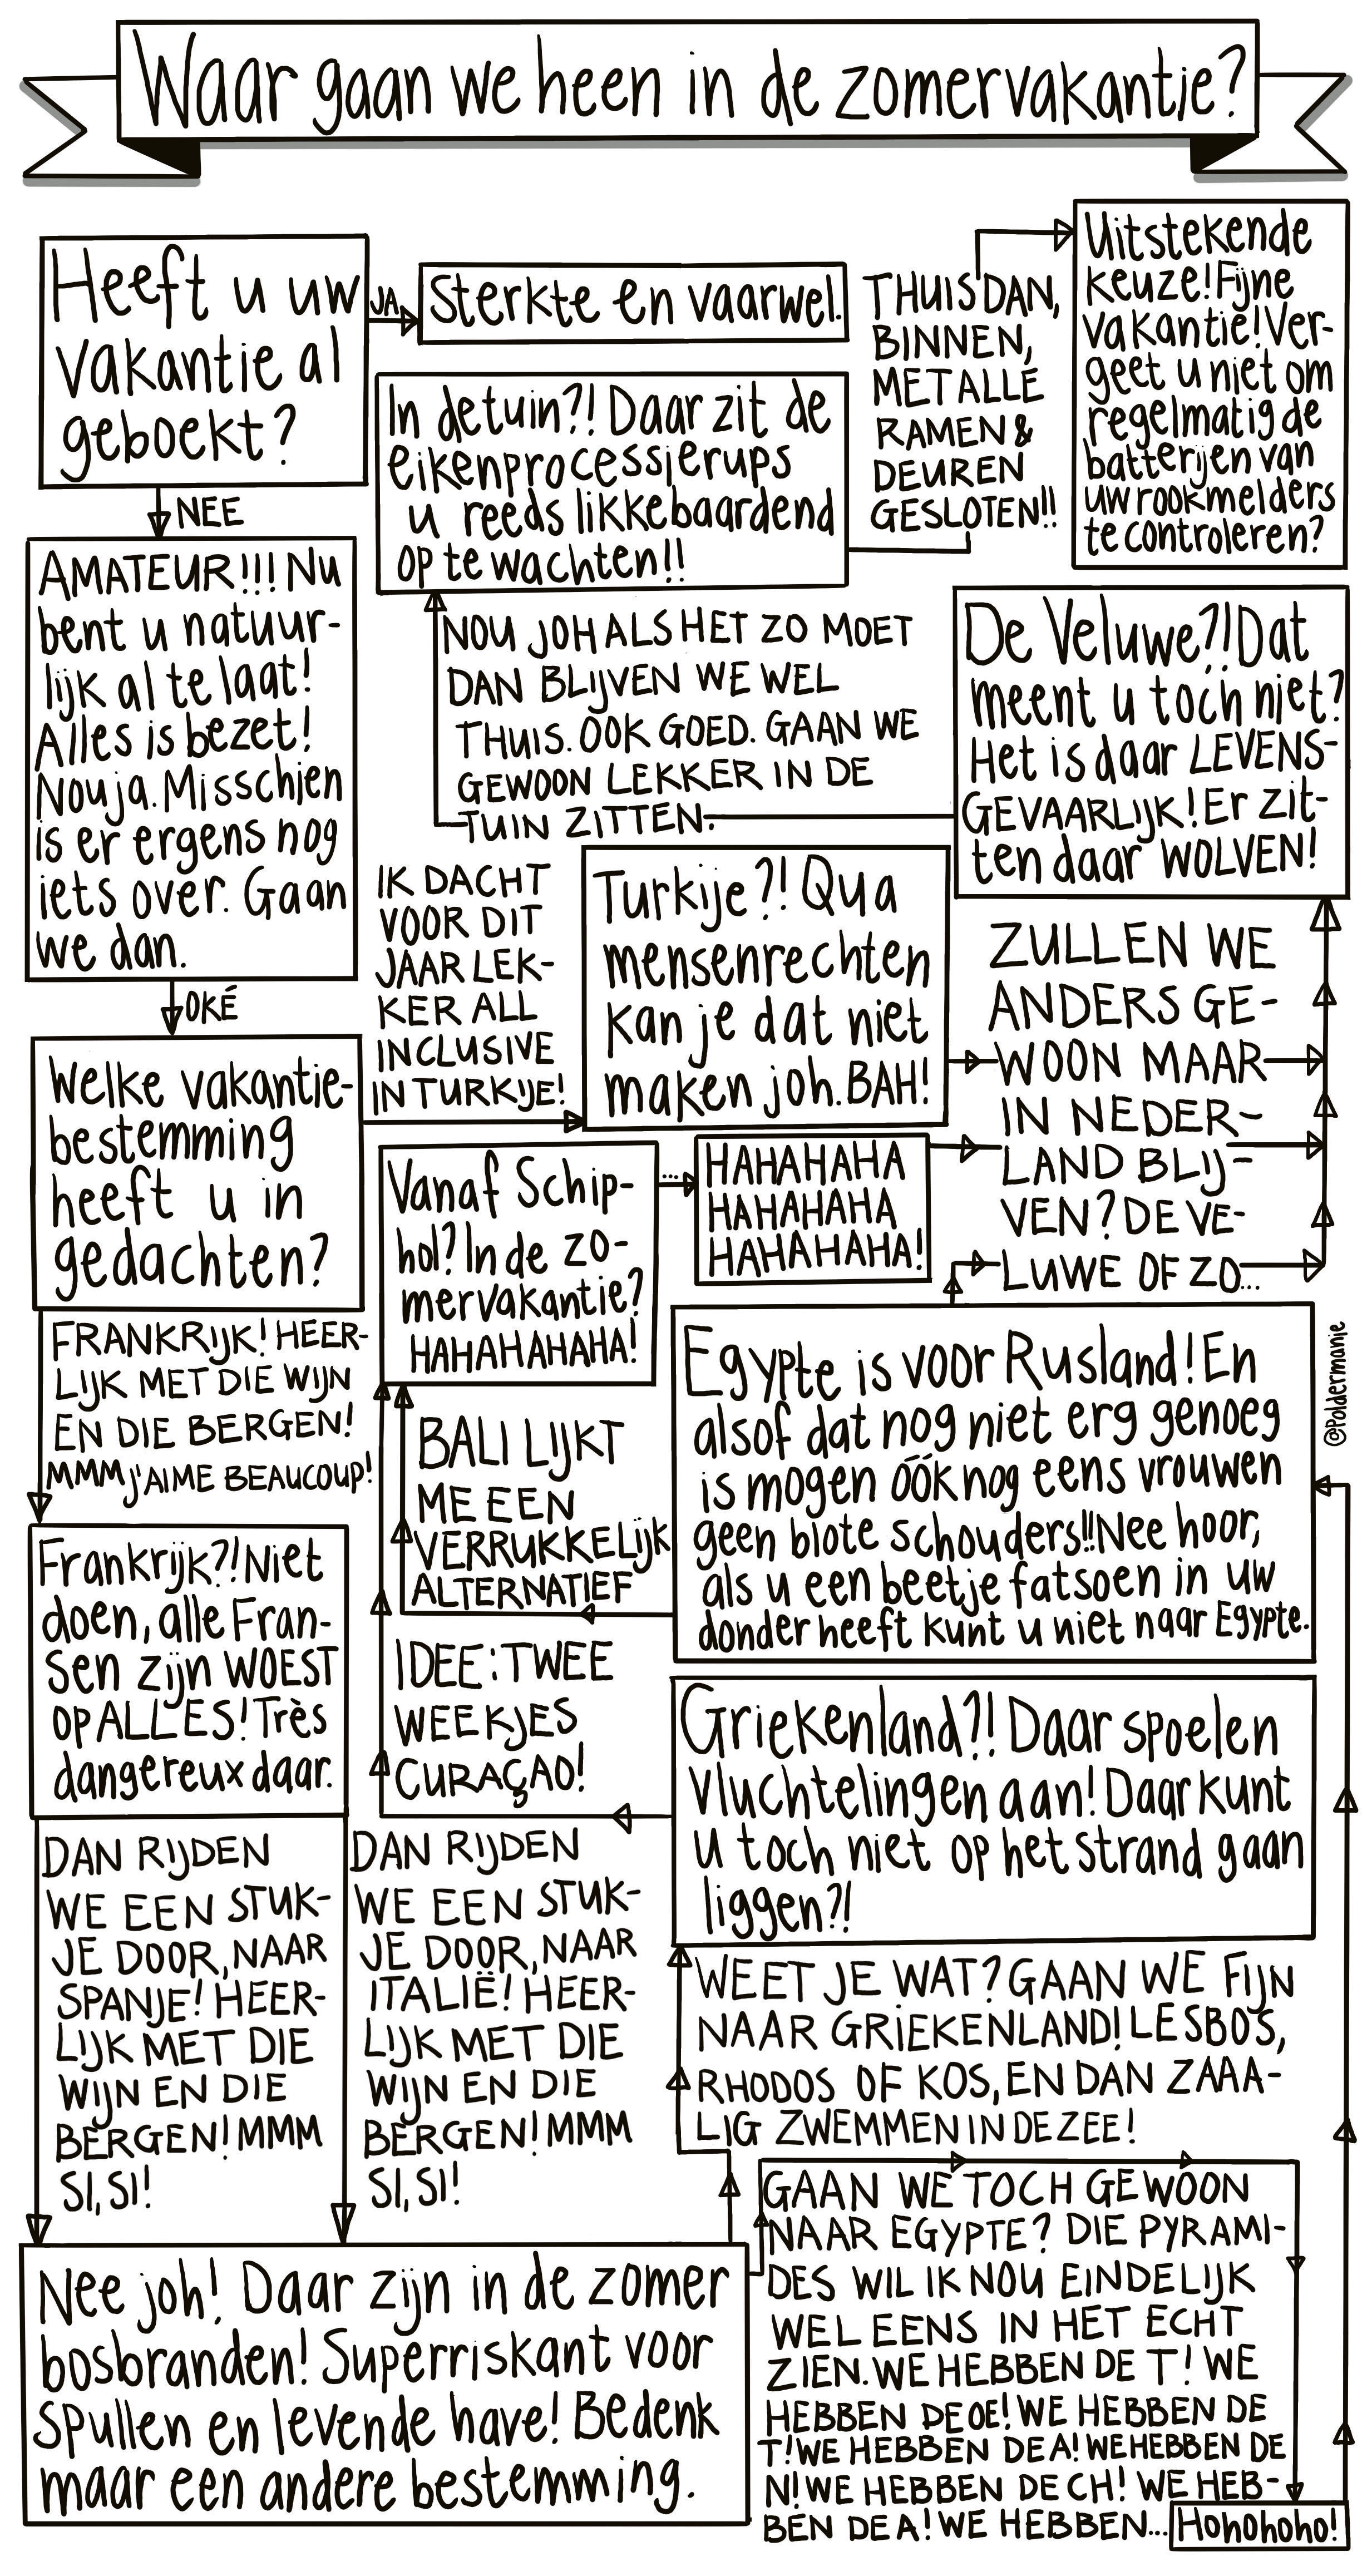 Waar gaan we heen in de zomervakantie?
Heeft u uw
vakantie al
geboekt?
JA
Sterkte en vaarwel.
NEE
AMATEUR!!! Nu
bent u natuur-
lijk al te laat!
Alles is bezet!
Nou ja. Misschien
is er ergens nog
iets over. Gaan
we dan.
OKÉ
Welke vakantie-
bestemming
heeft u in
gedachten?
IK DACHT
VOOR DIT
JAAR LEK-
KER ALL
INCLUSIVE
IN TURKIJE!
Turkije?! Qua
mensenrechten
kan je dat niet
maken joh. BAH!
FRANKRIJK! HEER-
LIJK MET DIE WIJN
EN DIE BERGEN!
MMM J'AIME BEAUCOUP!
Frankrijk?! Niet
doen, alle Fran-
sen zijn WOEST
op ALLES! Très
dangereux daar.
DAN RIJDEN
WE EEN STUK-
JE DOOR, NAAR
SPANJE! HEER-
LIJK MET DIE
WIJN EN DIE
BERGEN! MMM
SI, SI!
DAN RIJDEN
WE EEN STUK-
JE DOOR, NAAR
ITALIË! HEER-
LIJK MET DIE
WIJN EN DIE
BERGEN! MMM
SI, SI!
Nee joh! Daar zijn in de zomer
bosbranden! Superriskant voor
spullen en levende have! Bedenk
maar een andere bestemming.
WEET JE WAT? GAAN WE FIJN
NAAR GRIEKENLAND! LESBOS,
RHODOS OF KOS, EN DAN ZAAA-
LIG ZWEMMEN IN DE ZEE!
Griekenland?! Daar spoelen
vluchtelingen aan! Daar kunt
u toch niet op het strand gaan
liggen?!
GAAN WE TOCH GEWOON
NAAR EGYPTE? DIE PYRAMI-
DES WIL IK NOU EINDELIJK
WEL EENS IN HET ECHT
ZIEN. WE HEBBEN DE T! WE
HEBBEN DE OE! WE HEBBEN DE
T! WE HEBBEN DE A! WE HEBBEN DE
N! WE HEBBEN DE CH! WE HEB-
BEN DE A! WE HEBBEN...
Hohohoho!
Egypte is voor Rusland! En
alsof dat nog niet erg genoeg
is mogen óók nog eens vrouwen
geen blote schouders!! Nee hoor,
als u een beetje fatsoen in uw
donder heeft kunt u niet naar Egypte.
IDEE: TWEE
WEEKJES
CURAÇAO!
BALI LIJKT
ME EEN
VERRUKKELIJK
ALTERNATIEF
Vanaf Schip-
hol? In de zo-
mervakantie?
HAHAHAHAHA!
...
HAHAHAHA
HAHAHAHA
HAHAHAHA!
ZULLEN WE
ANDERS GE-
WOON MAAR
IN NEDER-
LAND BLIJ-
VEN? DE VE-
LUWE OF ZO...
De Veluwe?! Dat
meent u toch niet?
Het is daar LEVENS-
GEVAARLIJK! Er zit-
ten daar WOLVEN!
NOU JOH ALS HET ZO MOET
DAN BLIJVEN WE WEL
THUIS. OOK GOED. GAAN WE
GEWOON LEKKER IN DE
TUIN ZITTEN.
In de tuin?! Daar zit de
eikenprocessierups
u reeds likkebaardend
op te wachten!!
THUIS DAN,
BINNEN,
MET ALLE
RAMEN &
DEUREN
GESLOTEN!!
Uitstekende
keuze! Fijne
vakantie! Ver-
geet u niet om
regelmatig de
batterijen van
uw rookmelders
te controleren?
@Poldermanie